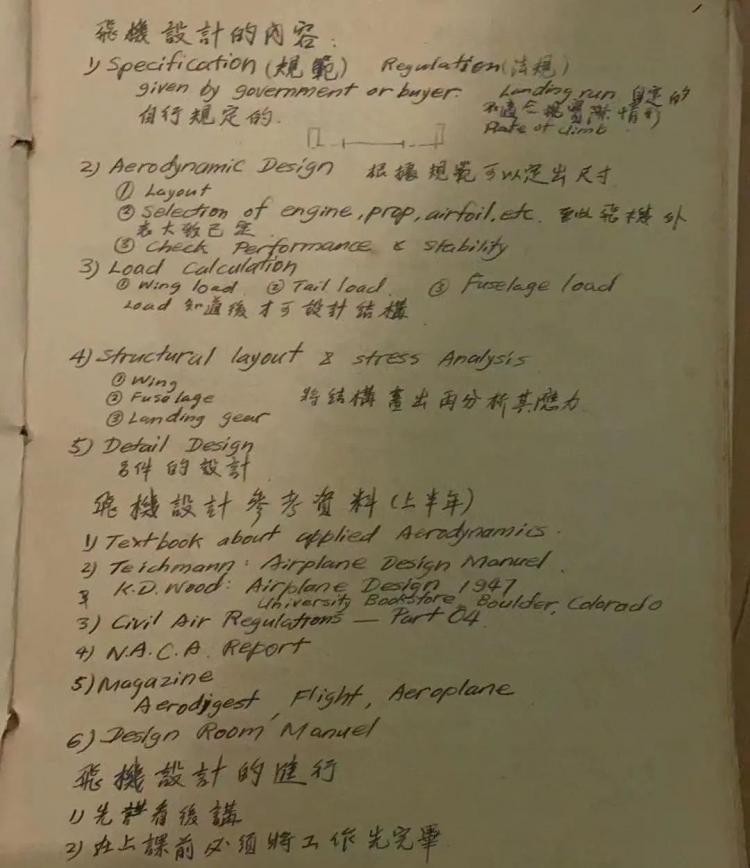 飛機設計的內容:
1) Specification (規範) Regulation (法規)
given by government or buyer. Landing run 自定的
自行規定的. 實際情形
Rate of climb
2) Aerodynamic Design 根據規範可以定出尺寸
① Layout
② Selection of engine, prop, airfoil, etc. 至此飛機外
表大致已定
③ Check Performance & Stability
3) Load Calculation
① Wing load ② Tail load ③ Fuselage load
Load 知道後才可設計結構
4) Structural layout & stress Analysis
① Wing
② Fuselage 將結構畫出再分析其應力
③ Landing gear
5) Detail Design
另件的設計
飛機設計參考資料 (上半年)
1) Textbook about applied Aerodynamics.
2) Teichmann: Airplane Design Manuel.
K.D. Wood: Airplane Design 1947
University Bookstore, Boulder, Colorado
3) Civil Air Regulations — Part 04
4) N.A.C.A. Report
5) Magazine
Aerodigest, Flight, Aeroplane
6) Design Room Manuel
飛機設計的進行
1) 先看後講
2) 在上課前必須將工作先完畢